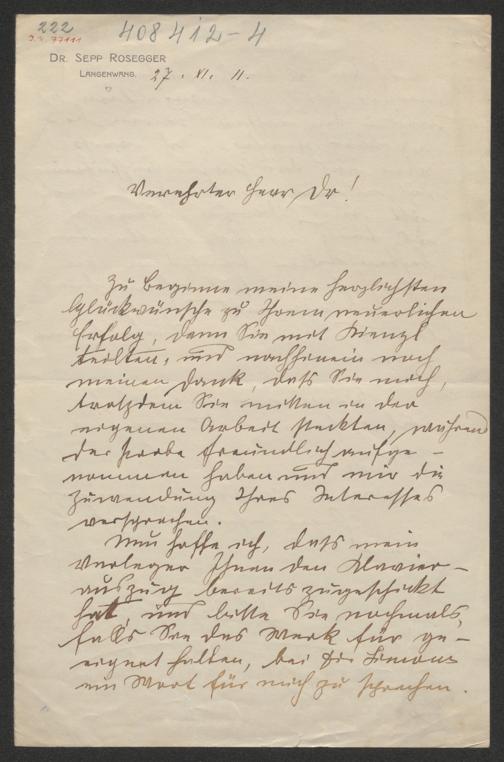 222
408412-4
J. N. 77111
DR. SEPP ROSEGGER
LANGENWANG.
27. XI. 11.
Verehrter Herr Dr!
Zu Beginne meine herzlichsten
Glückwünsche zu Ihrem neuerlichen
Erfolg, denn Sie mit Kienzl
teilten, und nachhinein noch
meinen Dank, dass Sie mich,
trotzdem Sie mitten in der
eigenen Arbeit steckten, während
der Probe freundlich aufge-
nommen haben und mir die
Zuwendung Ihres Interesses
versprachen.
Nun hoffe ich, dass mein
Verleger Ihnen den Klavier-
auszug bereits zugeschickt
hat, und bitte Sie nochmals,
falls Sie das Werk für ge-
eignet halten, bei Dr. Simons
ein Wort für mich zu sprechen.